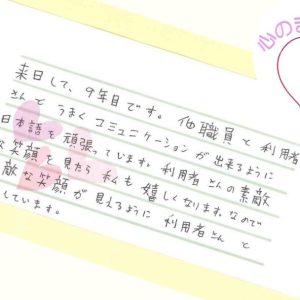 心の
来日して、9年目です。他職員と利用者
さんとうまくコミュニケーションが出来るように
日本語を頑張っています。利用者さんの素敵
な笑顔を見たら私も嬉しくなります。なので
敵な笑顔が見えるように利用者さんと
しています。